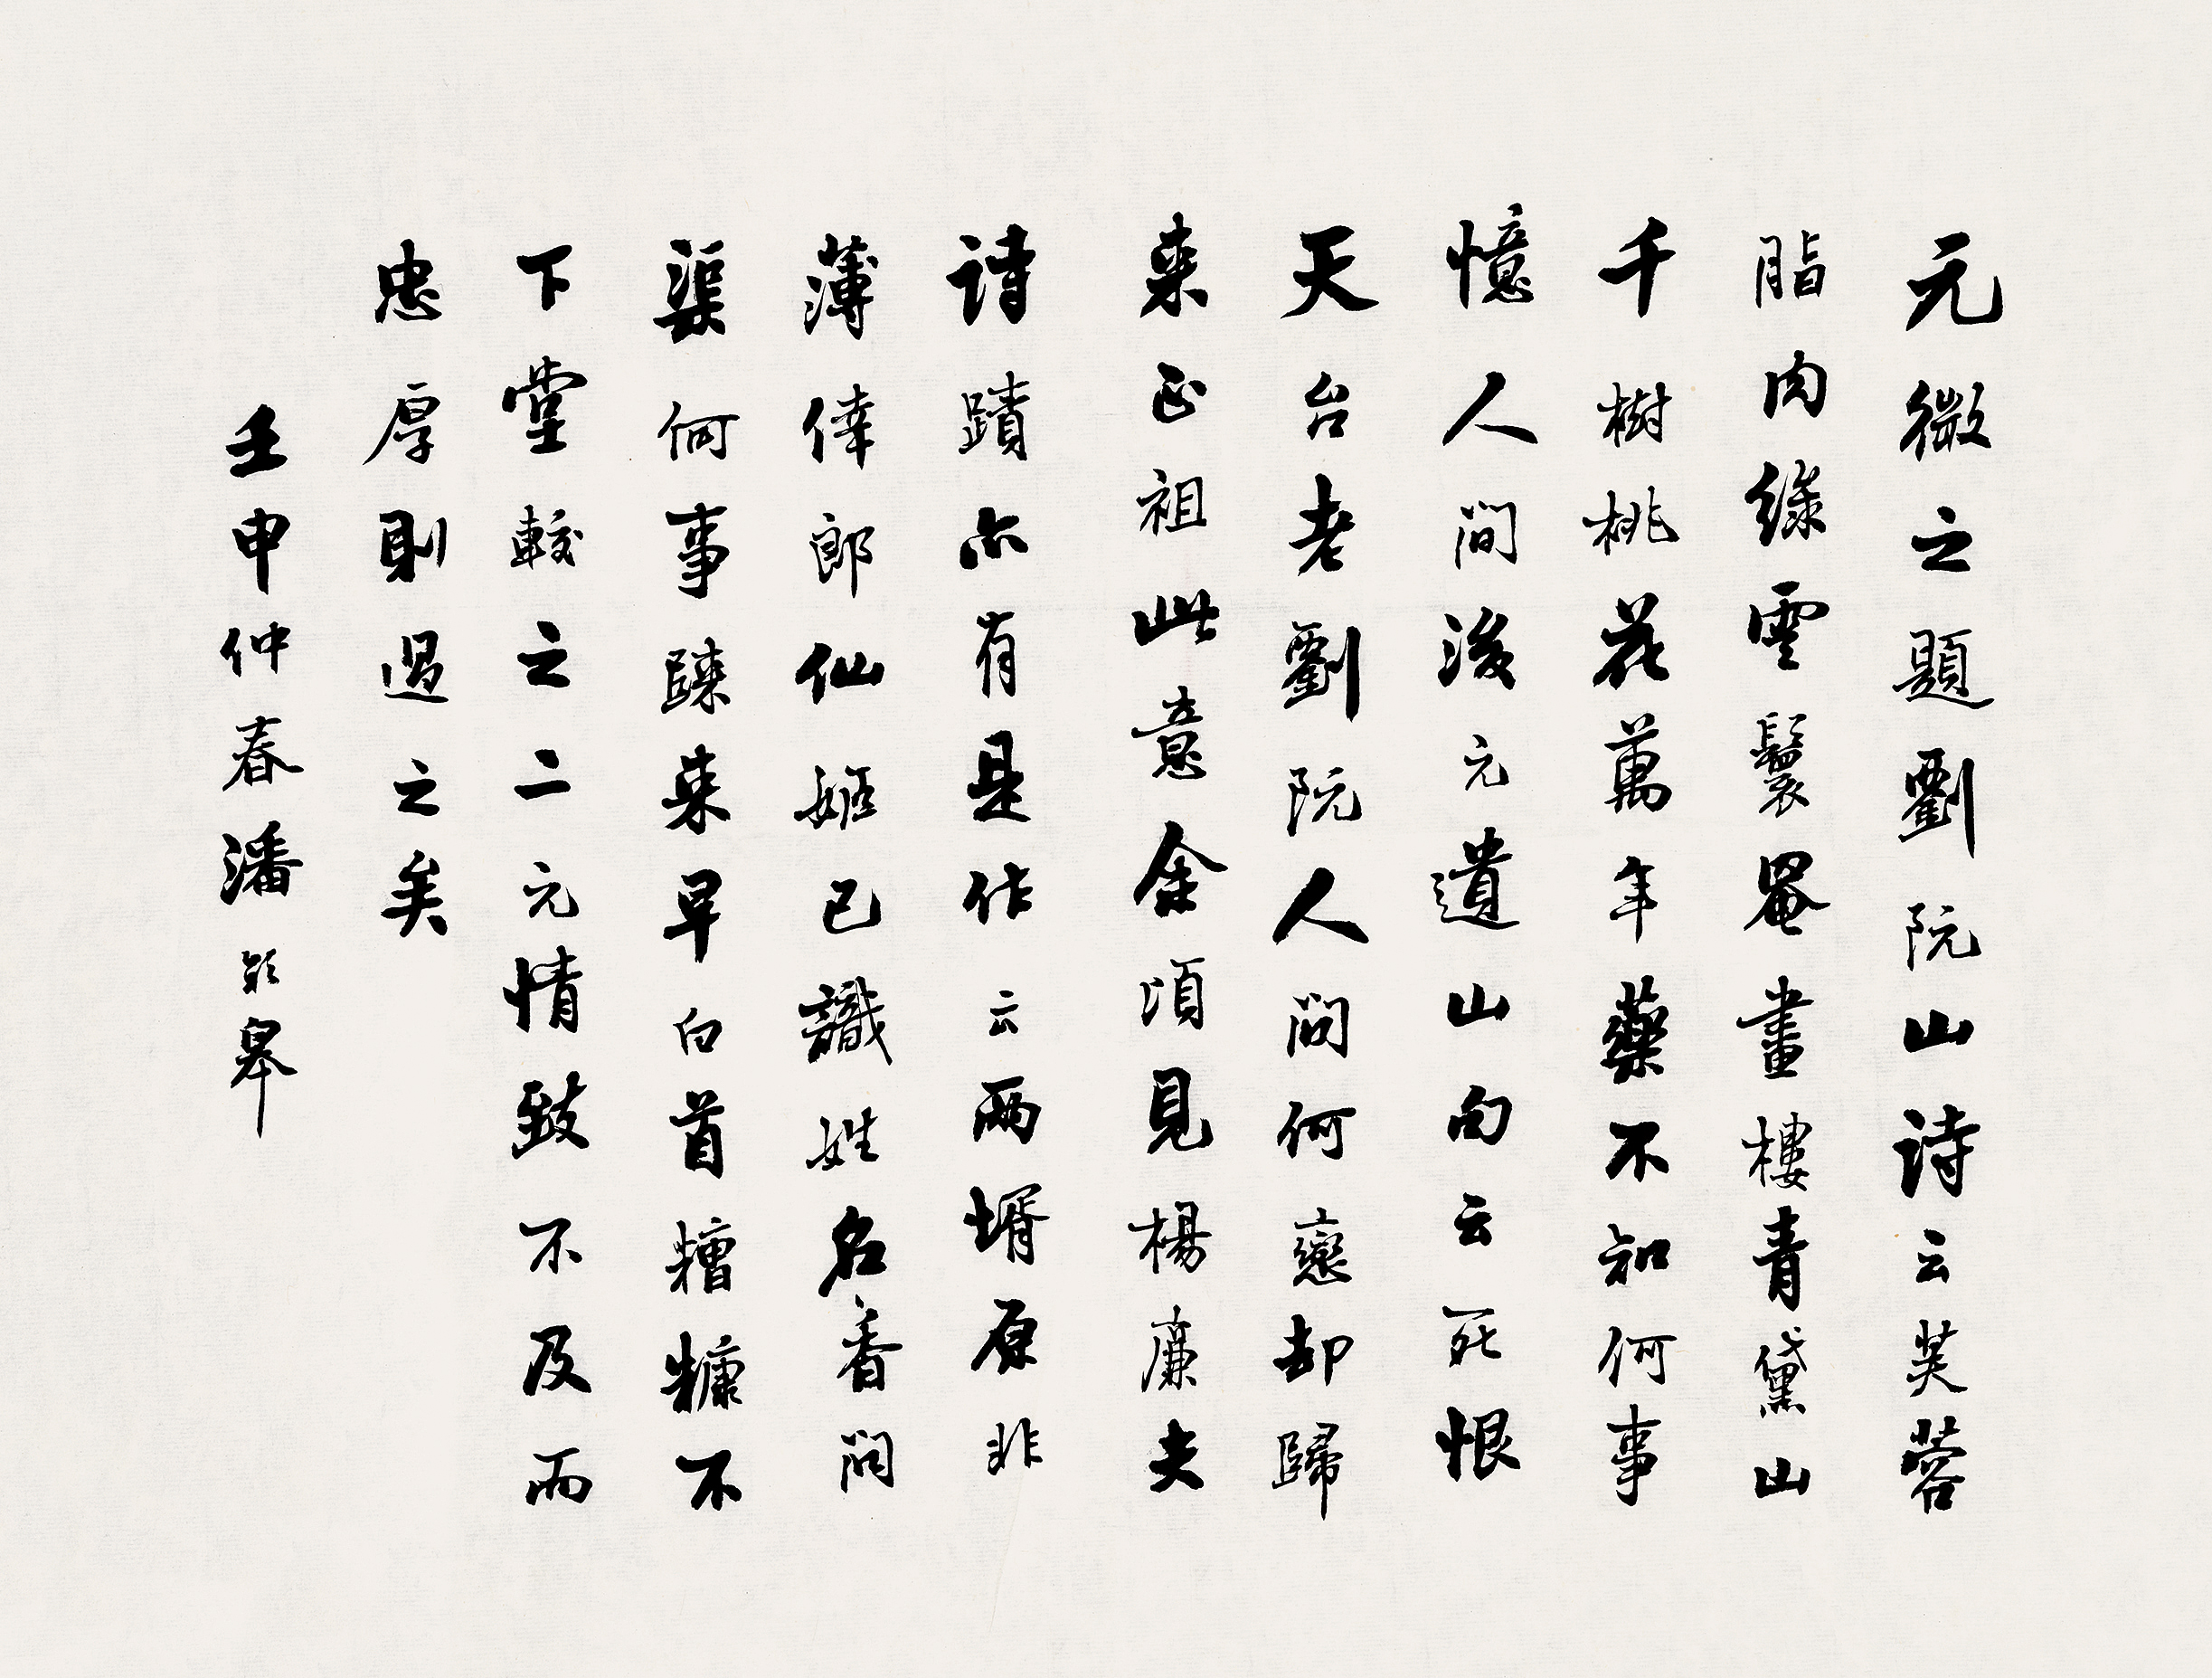 元微之題劉阮山詩云芙蓉
脂肉綠雲鬟罨畫樓青黛山
千樹桃花萬年藥不知何事
憶人間後元遺山句云死恨
天台老劉阮人間何戀却歸
来正祖此意余頃見楊廉夫
詩蹟亦有是作云兩壻原非
薄倖郎仙姬已識姓名香問
渠何事歸来早白首糟糠不
下堂較之二元情致不及而
忠厚則過之矣
壬申仲春潘齡皋